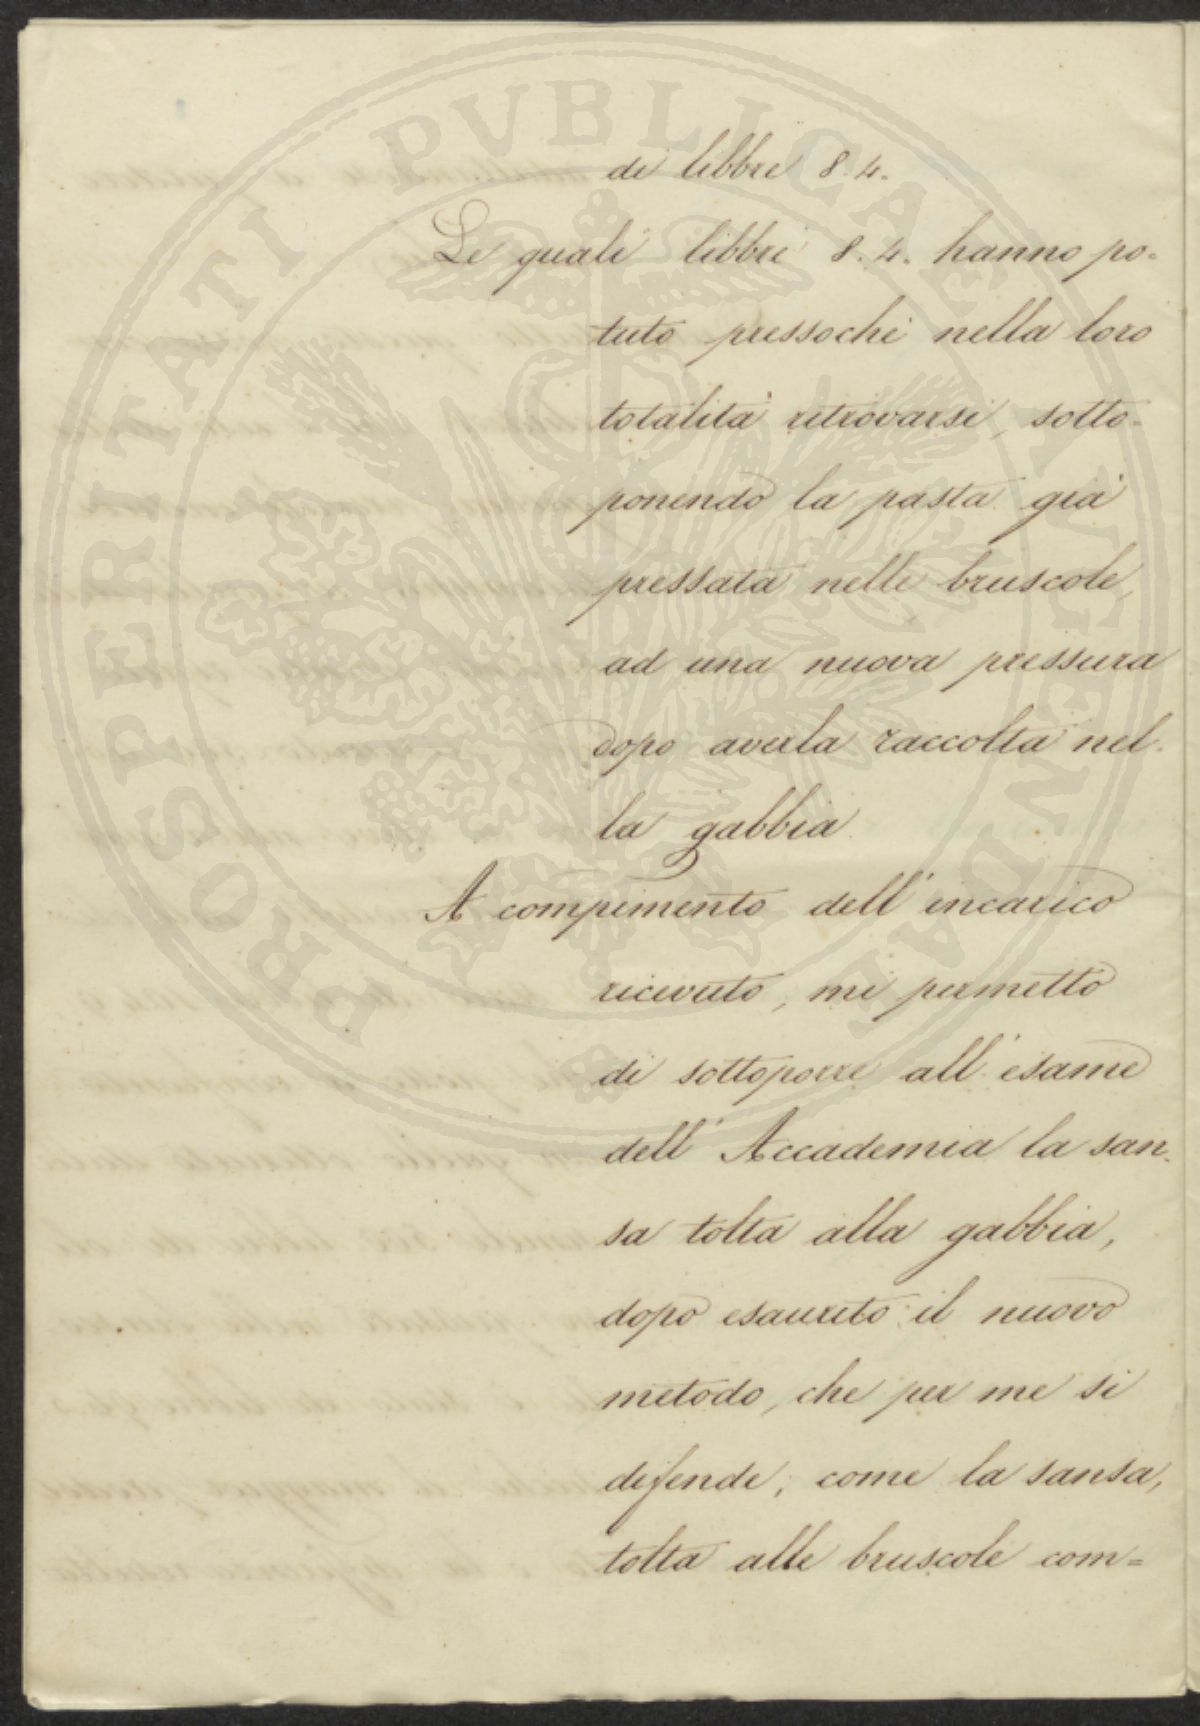 di libbre 8.4.
Le quali libbre 8.4. hanno po-
tuto pressochè nella loro
totalità ritrovarsi, sotto-
ponendo la pasta già
pressata nelle bruscole,
ad una nuova pressura
dopo averla raccolta nel-
la gabbia.
A compimento dell'incarico
ricevuto, mi permetto
di sottoporre all'esame
dell'Accademia la san-
sa tolta alla gabbia,
dopo esaurito il nuovo
metodo, che per me si
difende, come la sansa,
tolta alle bruscole com=
PROSPERITATI PVBLICAE AVGENDAE